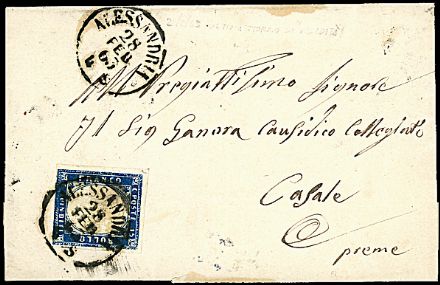 ALESSANDRIA
28
FEB
63
Al Pregiatissimo Signore
Il Sig Ganora Causidico Collegiato
Casale
preme
ALESSANDRIA
28
FEB